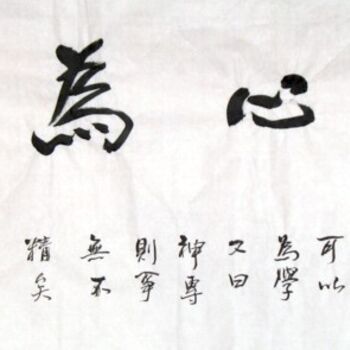 心為
可以
為學
又曰
神專
則事
無不
精矣